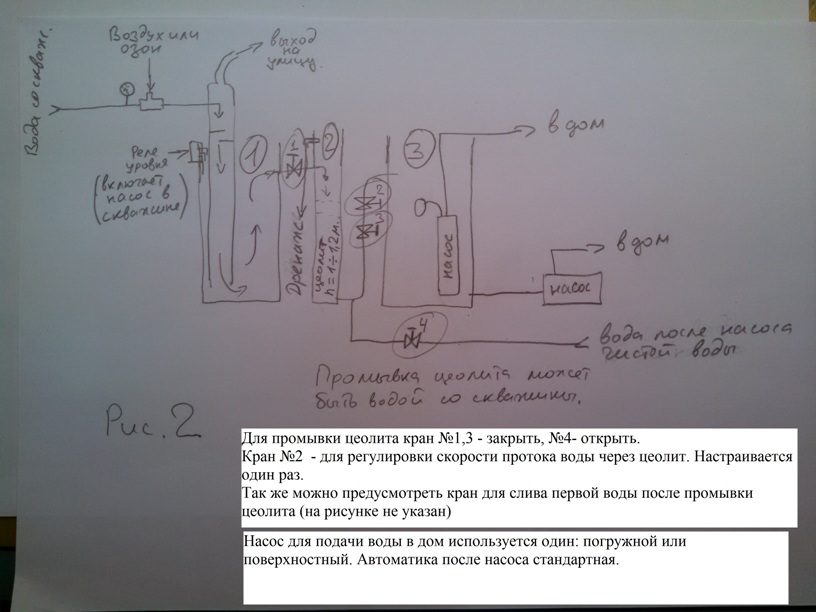 Вода со скваж.
Воздух или
озон
выход
на
улицу.
в дом
Реле
уровня
(включает
насос в
скважине)
1
1
2
3
2
3
Дренаж
цеолит
h=1÷1,2м.
насос
в дом
насос
4
вода после насоса
чистой воды
Промывка цеолита может
быть водой со скважины.
Рис. 2
Для промывки цеолита кран №1,3 - закрыть, №4- открыть.
Кран №2 - для регулировки скорости протока воды через цеолит. Настраивается
один раз.
Так же можно предусмотреть кран для слива первой воды после промывки
цеолита (на рисунке не указан)
Насос для подачи воды в дом используется один: погружной или
поверхностный. Автоматика после насоса стандартная.